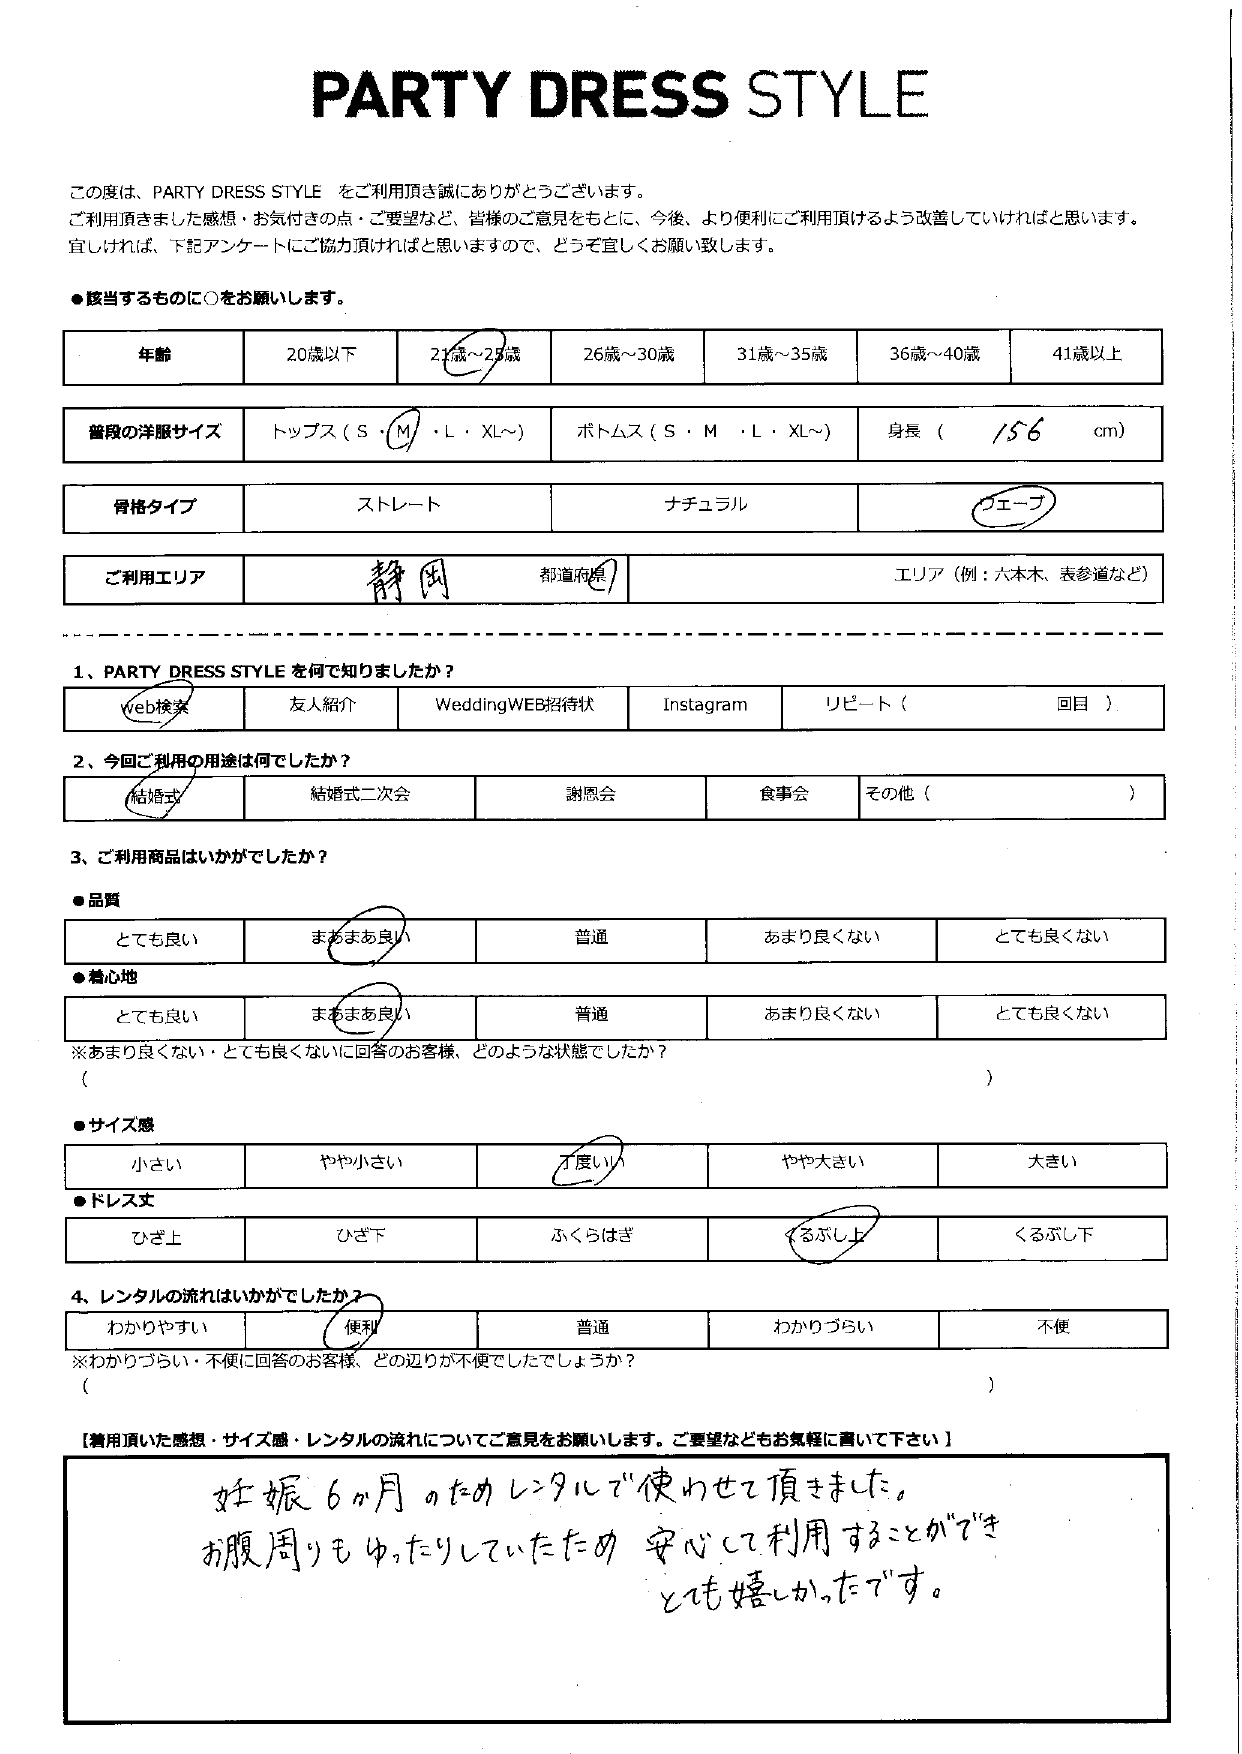 PARTY DRESS STYLE
この度は、PARTY DRESS STYLE をご利用頂き誠にありがとうございます。
ご利用頂きました感想・お気付きの点・ご要望など、皆様のご意見をもとに、今後、より便利にご利用頂けるよう改善していければと思います。
宜しければ、下記アンケートにご協力頂ければと思いますので、どうぞ宜しくお願い致します。
●該当するものに○をお願いします。
年齢 20歳以下 21歳～25歳 26歳～30歳 31歳～35歳 36歳～40歳 41歳以上
普段の洋服サイズ トップス ( S ・ M ・ L ・ XL～) ボトムス ( S ・ M ・ L ・ XL～) 身長 ( 156 cm)
骨格タイプ ストレート ナチュラル ウェーブ
ご利用エリア 静岡 都道府県 エリア（例：六本木、表参道など）
1、PARTY DRESS STYLE を何で知りましたか？
web検索 友人紹介 WeddingWEB招待状 Instagram リピート（ 回目 ）
2、今回ご利用の用途は何でしたか？
結婚式 結婚式二次会 謝恩会 食事会 その他（ ）
3、ご利用商品はいかがでしたか？
●品質
とても良い まあまあ良い 普通 あまり良くない とても良くない
●着心地
とても良い まあまあ良い 普通 あまり良くない とても良くない
※あまり良くない・とても良くないに回答のお客様、どのような状態でしたか？
（ ）
●サイズ感
小さい やや小さい 丁度いい やや大きい 大きい
●ドレス丈
ひざ上 ひざ下 ふくらはぎ くるぶし上 くるぶし下
4、レンタルの流れはいかがでしたか？
わかりやすい 便利 普通 わかりづらい 不便
※わかりづらい・不便に回答のお客様、どの辺りが不便でしたでしょうか？
（ ）
【着用頂いた感想・サイズ感・レンタルの流れについてご意見をお願いします。ご要望などもお気軽に書いて下さい】
妊娠6か月のためレンタルで使わせて頂きました。
お腹周りもゆったりしていたため 安心して利用することができ
とても嬉しかったです。